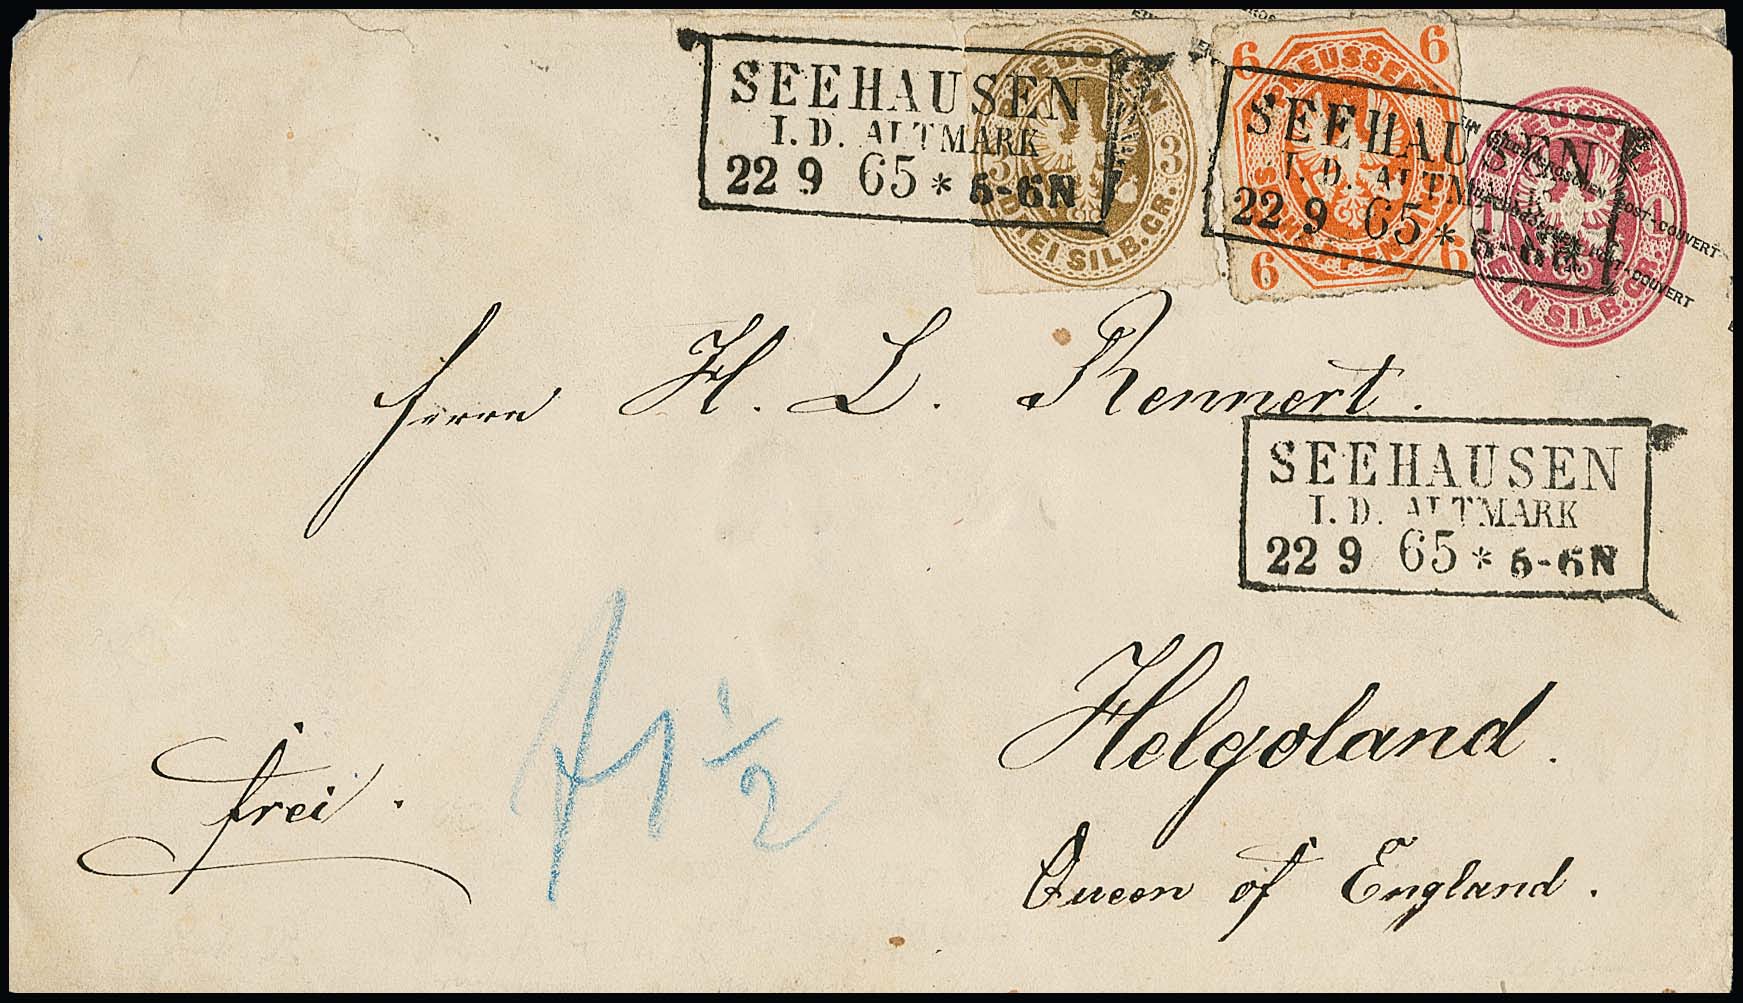 SEEHAUSEN
I. D. ALTMARK
22 9 65 * 5-6N
PREUSSEN
3 3
DREI SILB. GR.
6 6
6 6
PREUSSEN
SEEHAUSEN
I. D. ALTMARK
22 9 65 *
1 1
EIN SILB. GR.
POST-COUVERT
POST-COUVERT
Herrn H. L. Rennert.
SEEHAUSEN
I. D. ALTMARK
22 9 65 * 5-6N
1½
Helgoland.
frei.
Queen of England.